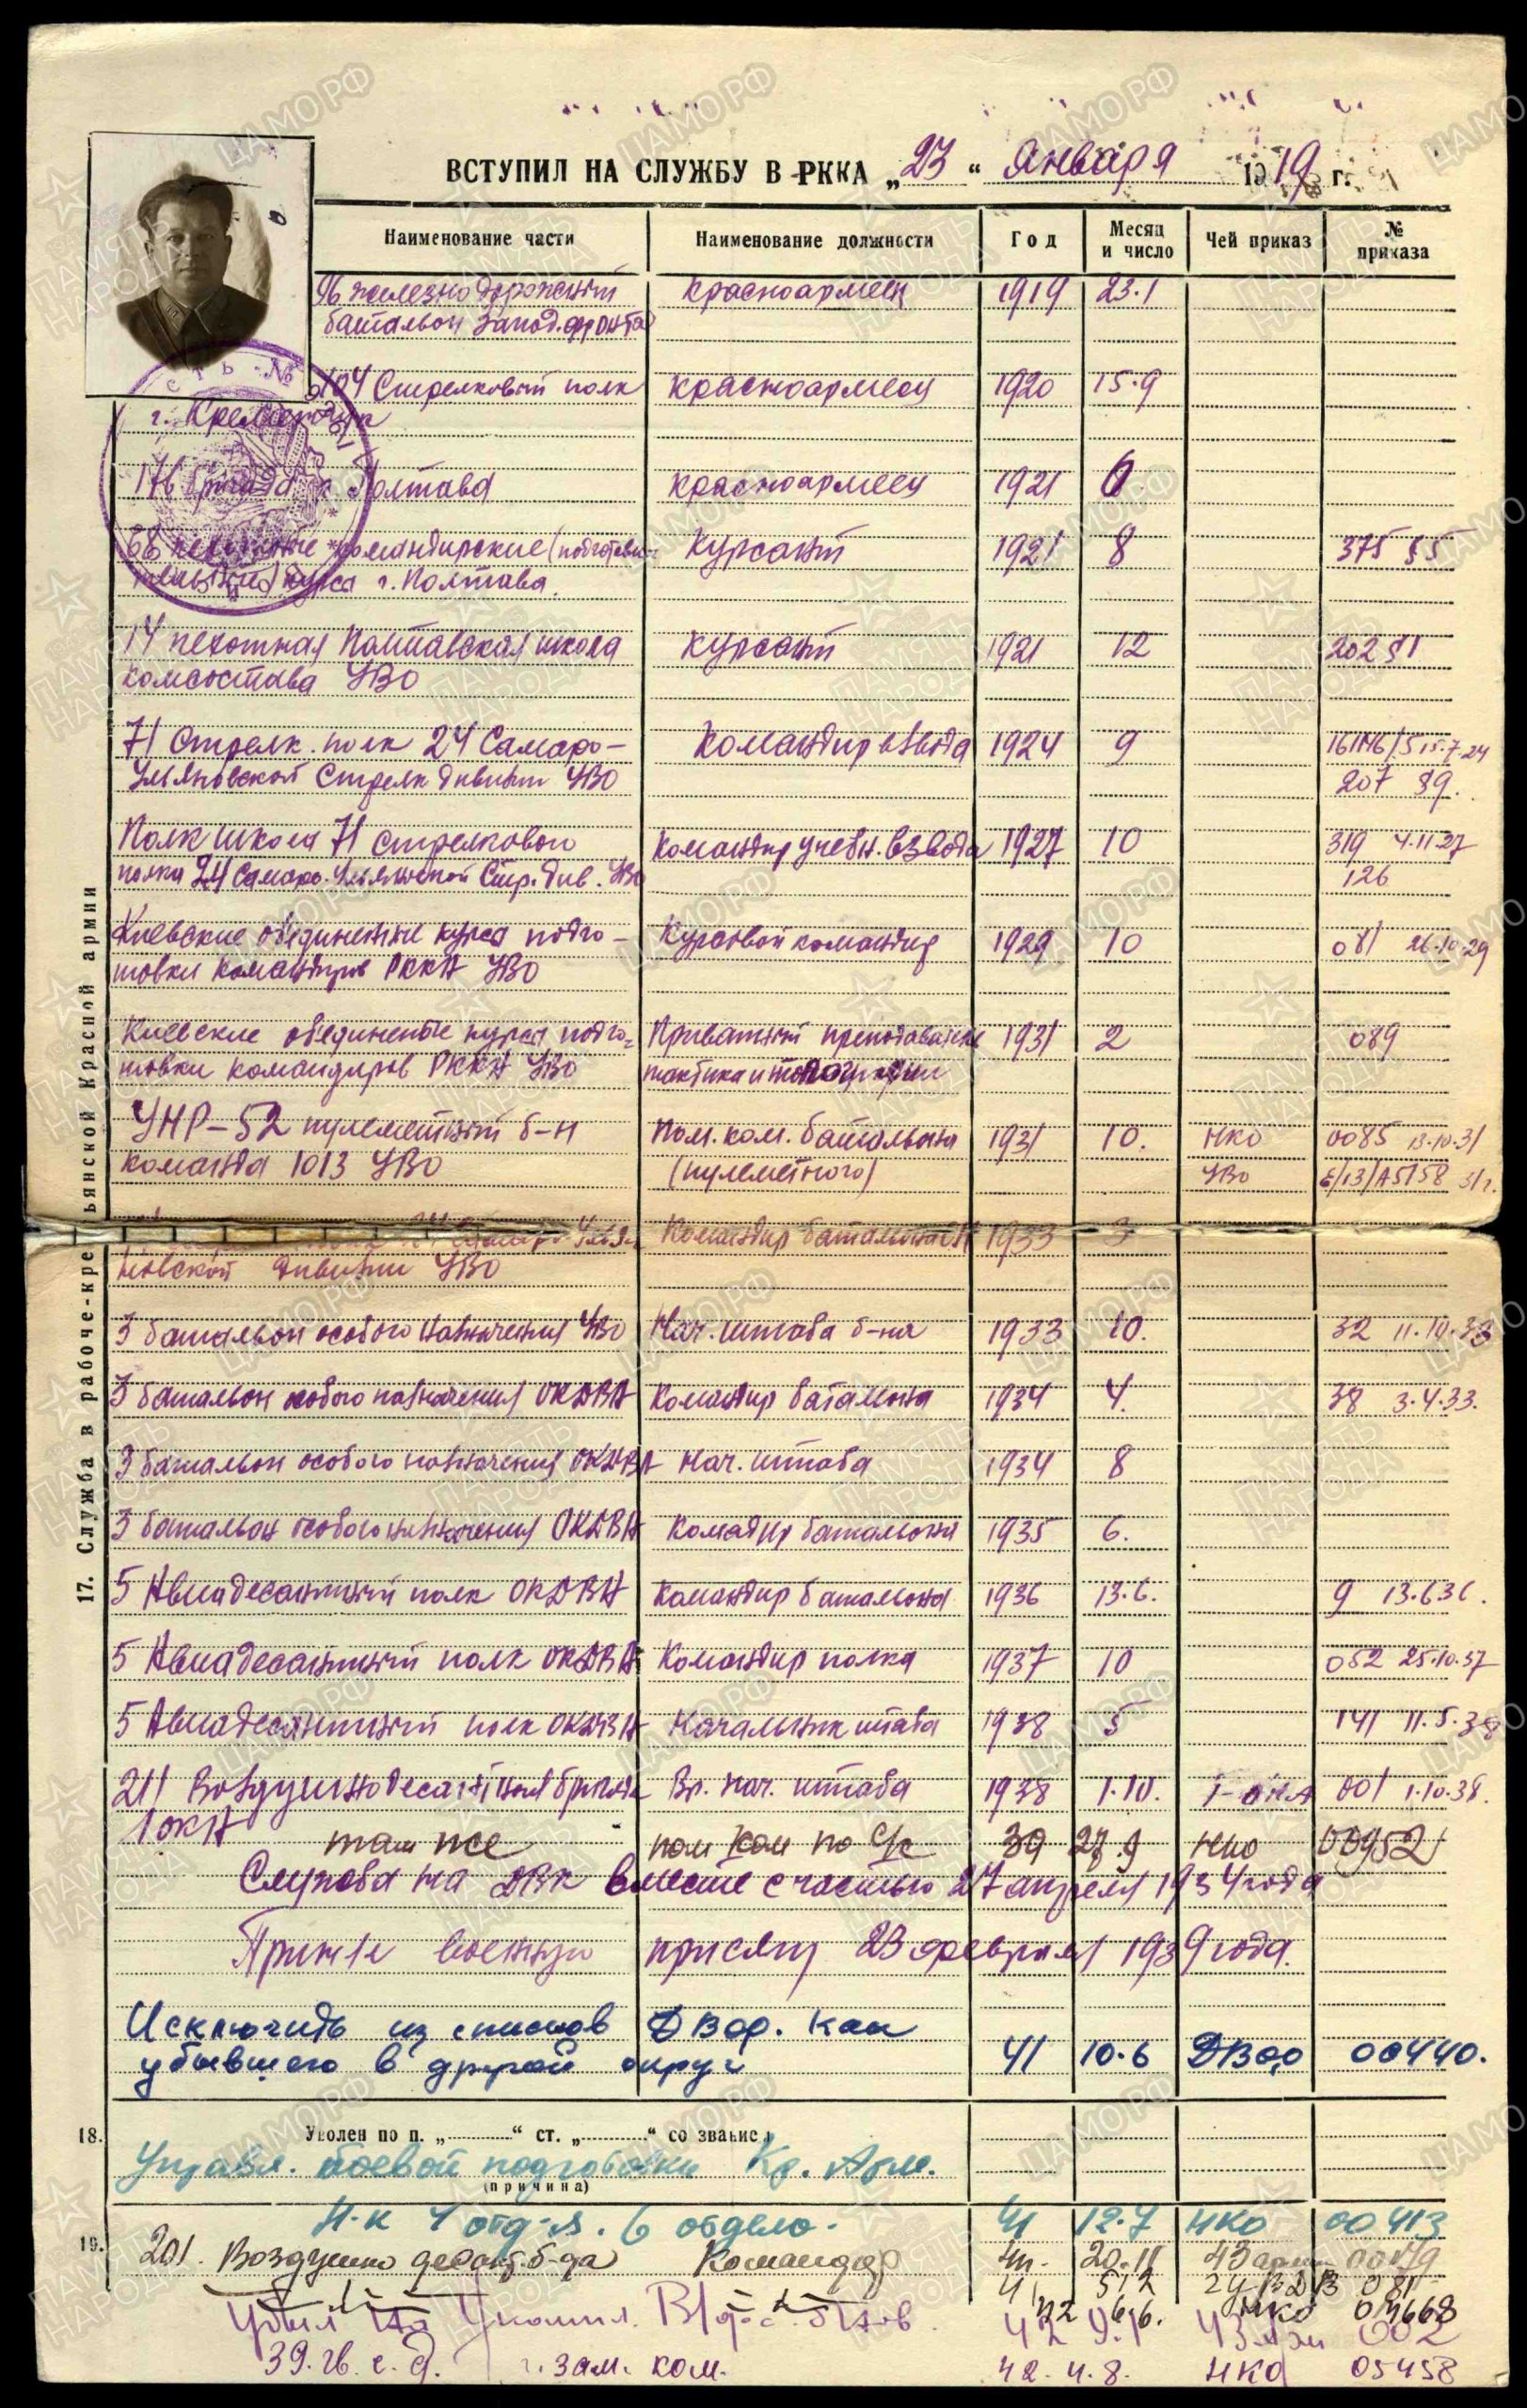 ВСТУПИЛ НА СЛУЖБУ В РККА „23“ Января 1919 г.
Наименование части Наименование должности Год Месяц и число Чей приказ № приказа
96 железнодорожный красноармеец 1919 23.1
батальон Запад. фронта
Стрелковый полк красноармеец 1920 15.9
г. Кременчук
176 бригада г. Полтава красноармеец 1921 6
68 пехотные командирские (подготови- курсант 1921 8 375 §5
тельные) курса г. Полтава.
14 пехотная Полтавская школа курсант 1921 12 202 §1
комсостава УВО
71 Стрелк. полк 24 Самаро- Командир взвода 1924 9 15.7.24
Ульяновской Стрелк дивизии УВО 207 §9.
Полк школа 71 стрелкового командир учебн. взвода 1927 10 319 4.11.27
полка 24 Самаро-Ульяновской Стр. див. УВО 126
Киевские объединенные курса подго- Курсовой командир 1929 10 081 26.10.29
товки командиров РККА УВО
Киевские объединеные курса подго- Приватный преподаватель 1931 2 089
товки командиров РККА УВО тактики и топографии
УНР-52 пулеметный б-н Пом. ком. батальона 1931 10. НКО 0085 13.10.31
команда 1013 УВО (пулеметного) УВО 6/13/А5158 31г.
Командир батальона 1933 3
новской дивизии УВО
3 батальон особого назначения УВО Нач. штаба б-на 1933 10. 32 11.10.33
3 батальон особого назначения ОКДВА Командир батальона 1934 4. 38 3.4.33.
3 батальон особого назначения ОКДВА Нач. штаба 1934 8
3 батальон особого назначения ОКДВА Командир батальона 1935 6.
5 Авиадесантный полк ОКДВА Командир батальона 1936 13.6. 9 13.6.36.
5 Авиадесантный полк ОКДВА Командир полка 1937 10 052 25.10.37
5 Авиадесантный полк ОКДВА Начальник штаба 1938 5 141 11.5.38
211 Воздушнодесантная бригада Вр. нач. штаба 1938 1.10. 1-ОКА 001 1.10.38.
1 ОКА
там же пом ком по с/ч 39 27.9 НКО 00952
Служба на ДВК вместе с частью 27 апреля 1934 года
Принял военную присягу 23 февраля 1939 года.
Исключить из списков ДВфр. как
убывшего в другой округ 41 10.6 ДВфр 00440.
17. Служба в рабоче-кре ьянской Красной армии
18. Уволен по п. „ “ ст. „ “ со звание
Управл. боевой подготовки Кр. Арм.
(причина)
Н-к 4 отд-я. 6 отдела. 41 12.7 НКО 00413
19. 201. Воздушно десант. б-да Командир 41. 20.11 43 арм
41 5.12 081
42 6.6. НКО 04668
Убыл на 42 9.1 43 002
39. гв. с. д. зам. ком. 42. 4. 8. НКО 05458
ЦАМО.РФ
ПАМЯТЬ НАРОДА